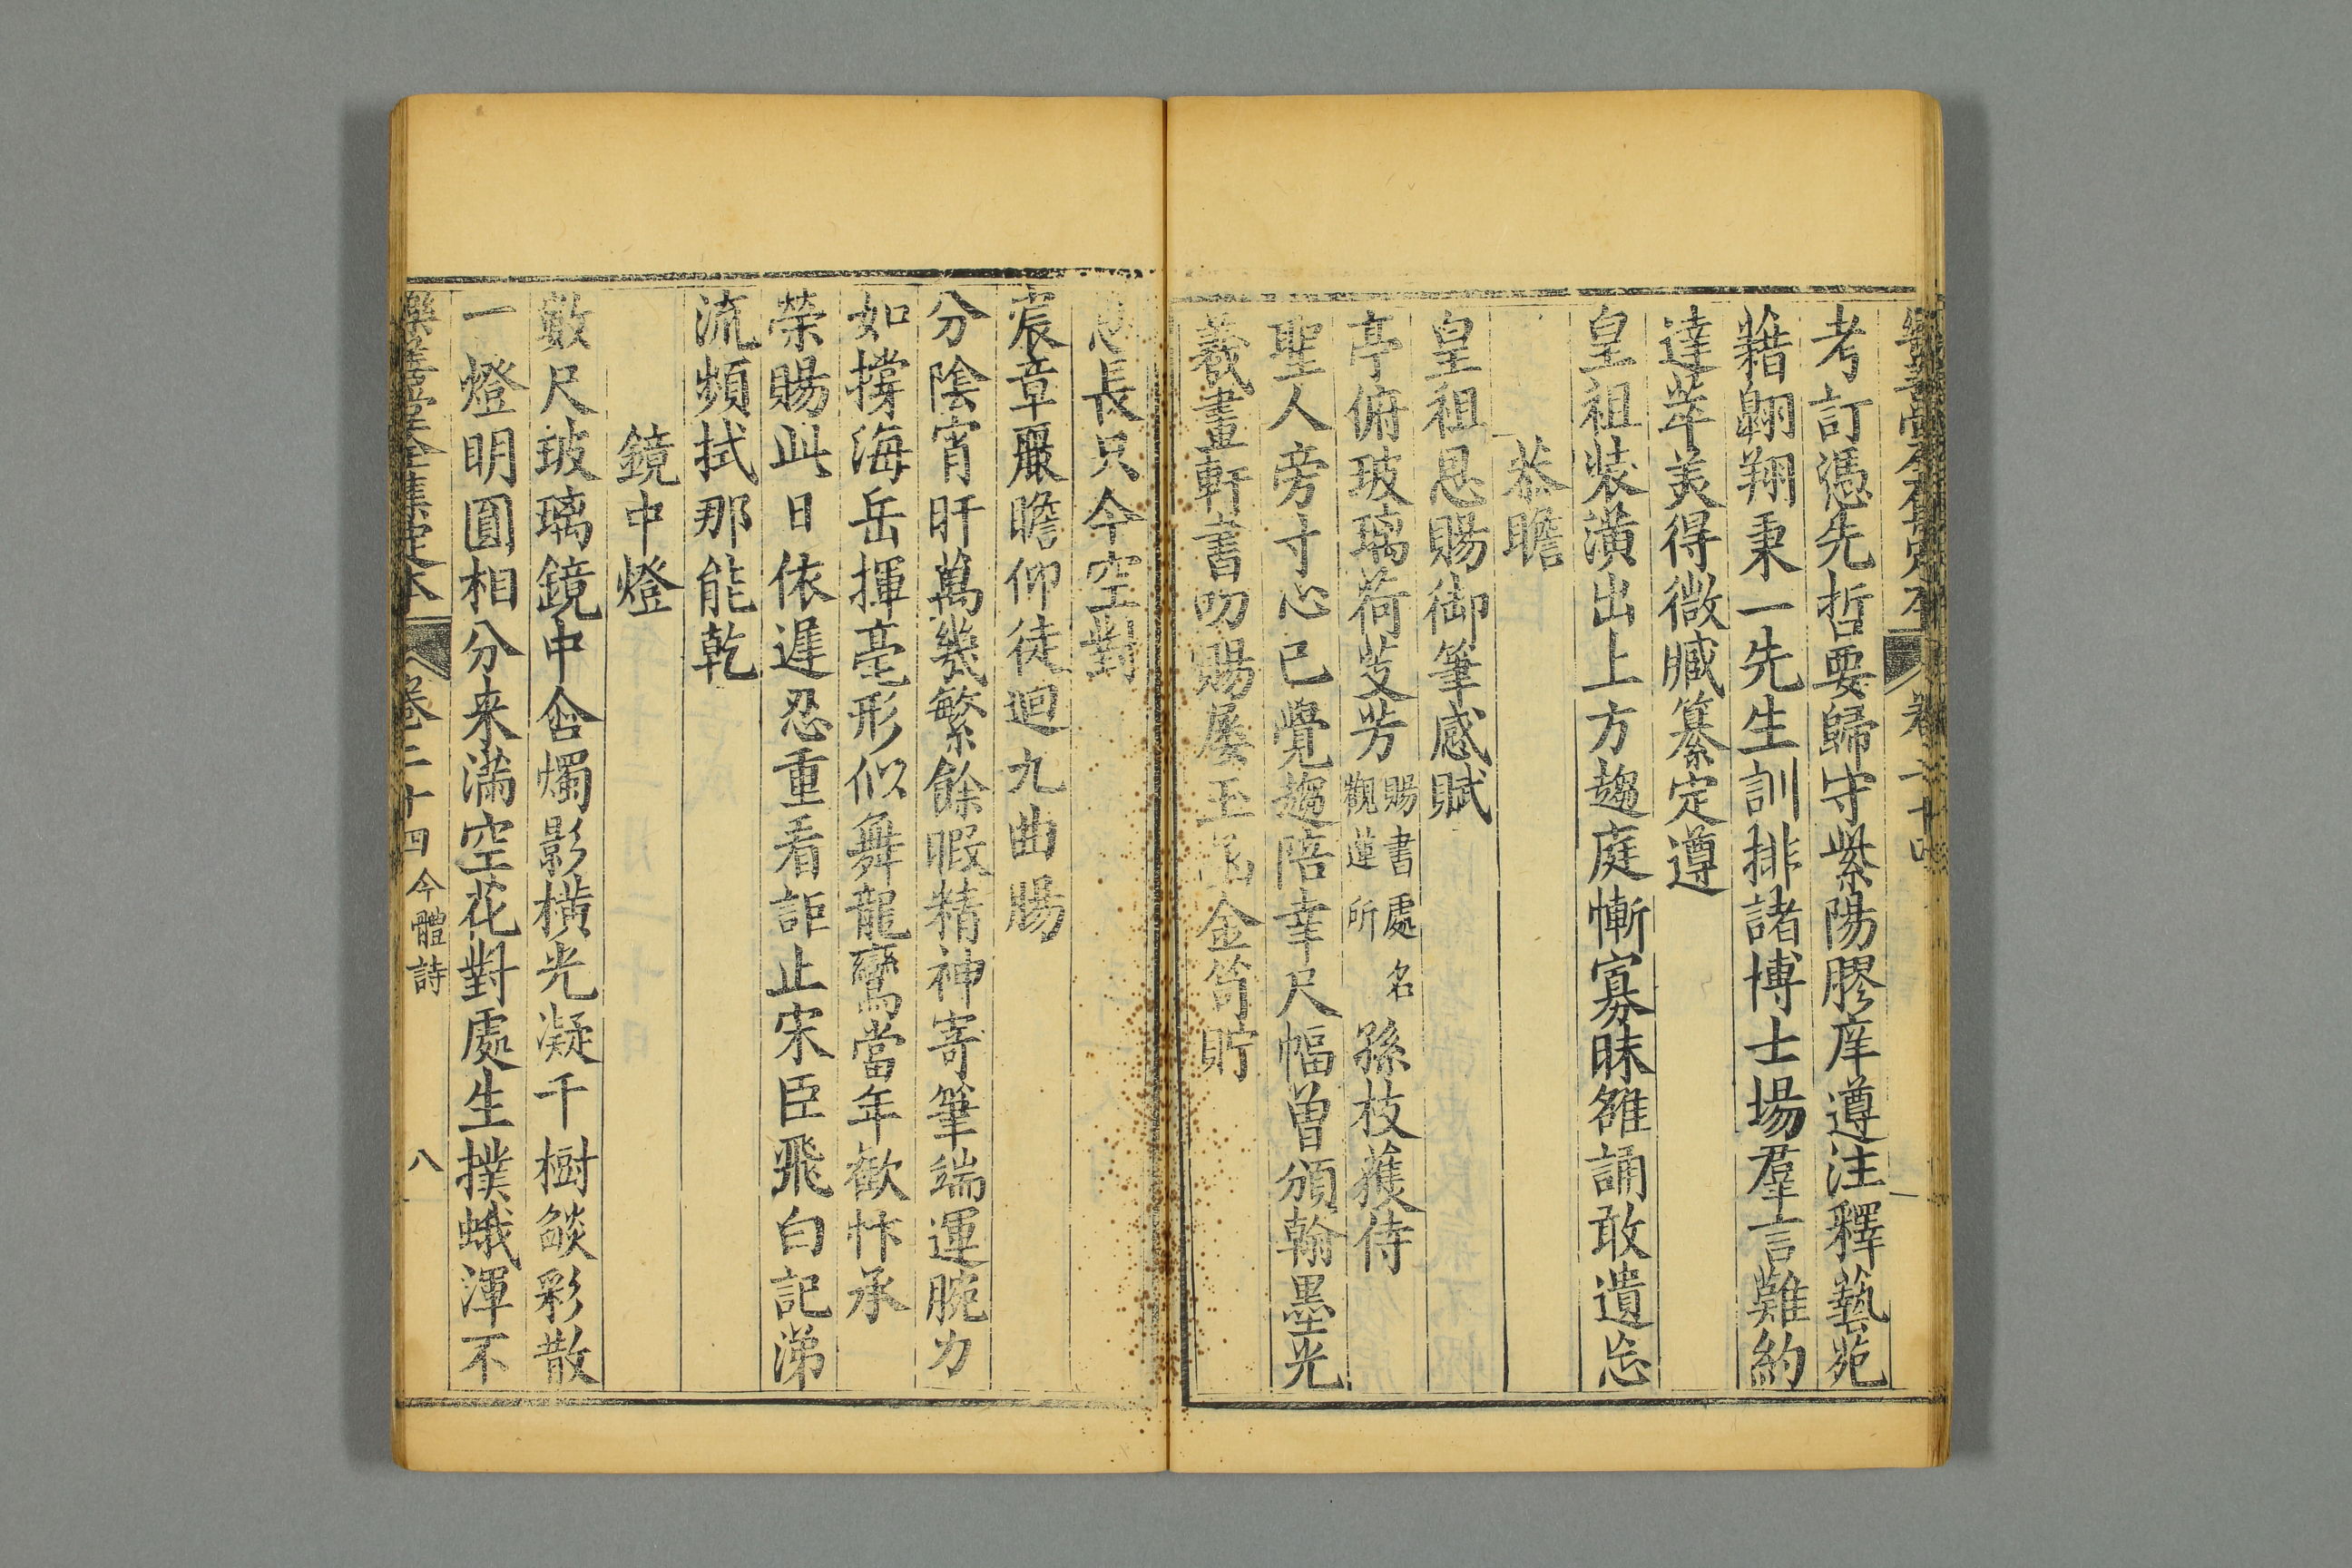 樂善堂全集定本 卷二十四
考訂憑先哲要歸守紫陽膠庠遵注釋藝苑
藉翺翔秉一先生訓排諸博士場羣言難約
達萃美得微臧纂定遵
皇祖裝潢出上方趨庭慚寡昧雒誦敢遺忘
恭瞻
皇祖恩賜御筆感賦
亭俯玻璃荷芰芳賜書處名觀蓮所孫枝獲侍
聖人旁寸心已覺趨陪幸尺幅曾頒翰墨光
羲畫軒書叨賜屡玉函金笥貯
恩長只今空對
宸章麗瞻仰徒迴九曲腸
分陰宵旰萬幾繁餘暇精神寄筆端運腕力
如撐海岳揮亳形似舞龍鸞當年歡忭承
榮賜此日依遲忍重看詎止宋臣飛白記涕
流頻拭那能乾
鏡中燈
數尺玻璃鏡中含燭影橫光凝千樹燄彩散
一燈明圓相分来滿空花對處生撲蛾渾不
樂善堂全集定本 卷二十四 今體詩 八